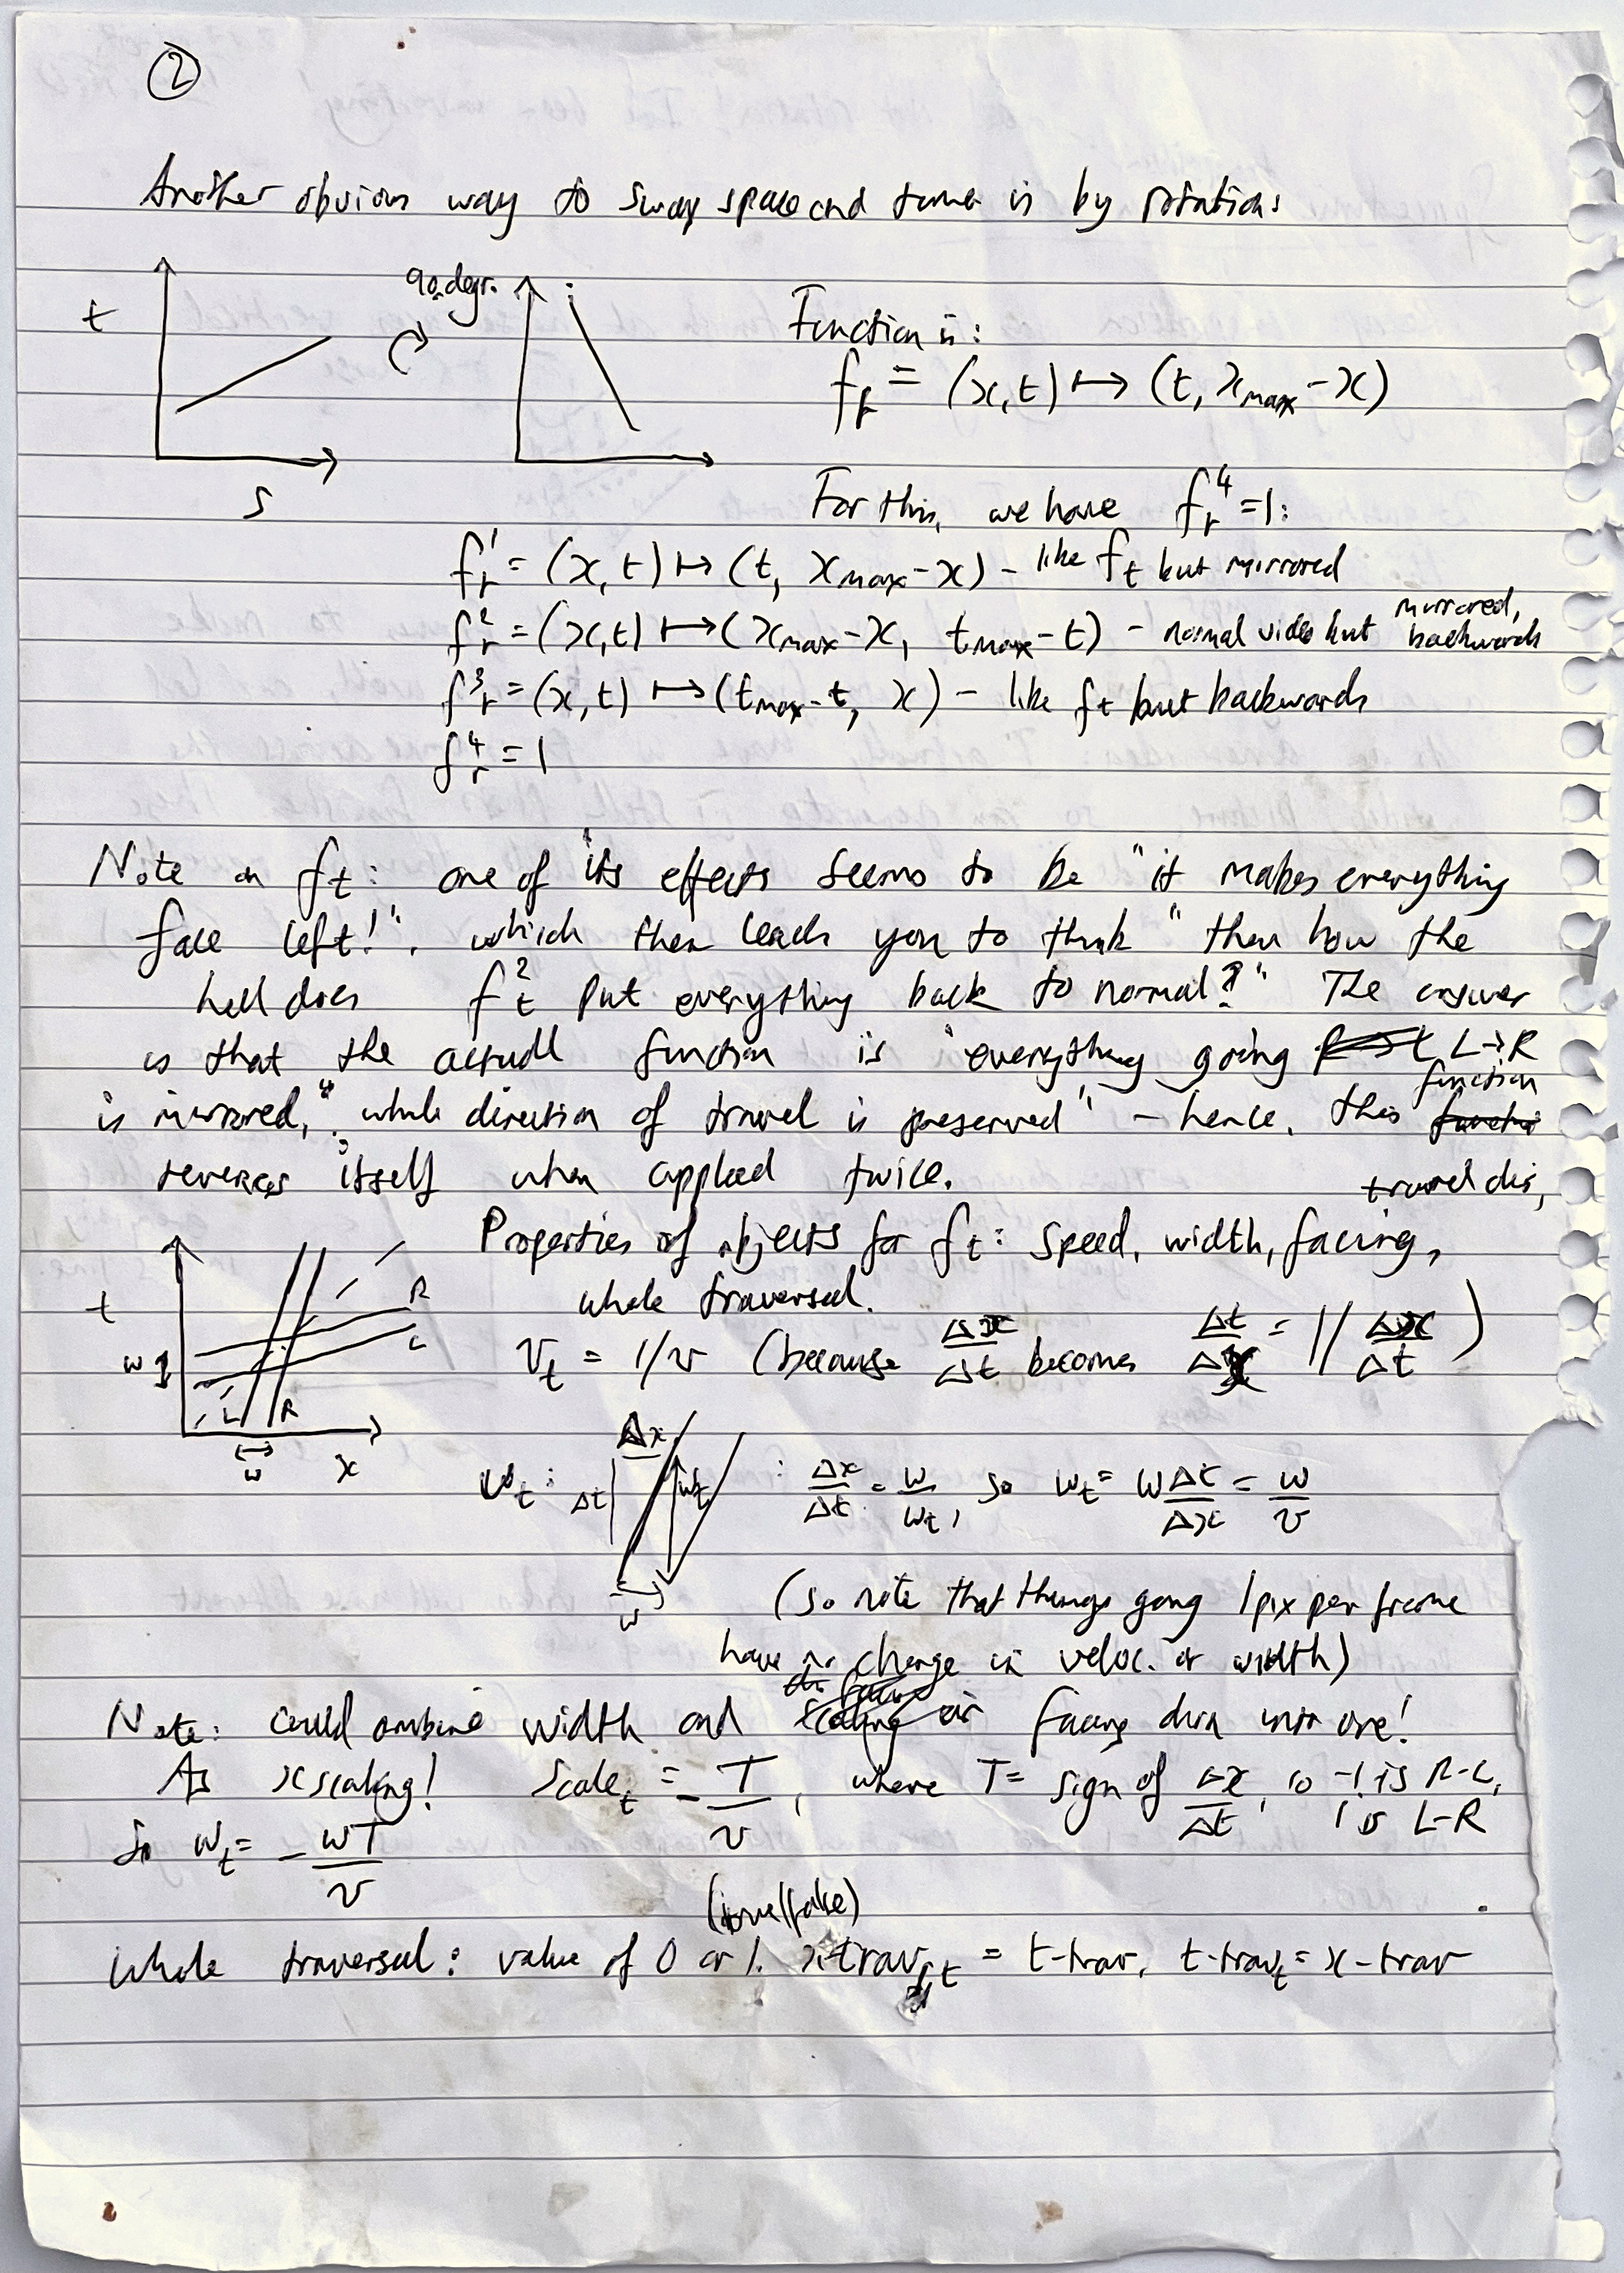 2
Another obvious way to swap space and time is by rotation:
t
90 degr.
s
Function is:
f_r = (x, t) ↦ (t, x_max - x)
For this, we have f_r^4 = 1:
f_r^1 = (x, t) ↦ (t, x_max - x) - like f_t but mirrored
f_r^2 = (x, t) ↦ (x_max - x, t_max - t) - normal video but mirrored, backwards
f_r^3 = (x, t) ↦ (t_max - t, x) - like f_t but backwards
f_r^4 = 1
Note on f_t: one of its effects seems to be "it makes everything
face left!", which then leads you to think "then how the
hell does f_t^2 put everything back to normal?" The answer
is that the actual function is "everything going L→R
is mirrored, while direction of travel is preserved" - hence, this function
reverses itself when applied twice.
Properties of objects for f_t: speed, width, facing, travel dir,
whole traversal.
t
R
L
w
L R
w
x
v_t = 1/v (because Δx/Δt becomes Δt/Δx = 1/ Δx/Δt)
w_t:
Δx
Δt
w_t
w
: Δx/Δt = w/w_t, so w_t = w Δt/Δx = w/v
(so note that things going 1 pix per frame
have no change in veloc. or width)
Note: could combine width and facing dirn into one!
As x scaling! Scale_t = -T/v, where T = sign of Δx/Δt, so -1 is R-L,
1 is L-R
So w_t = -wT/v
(true/false)
Whole traversal: value of 0 or 1. x-trav_t = t-trav, t-trav_t = x-trav